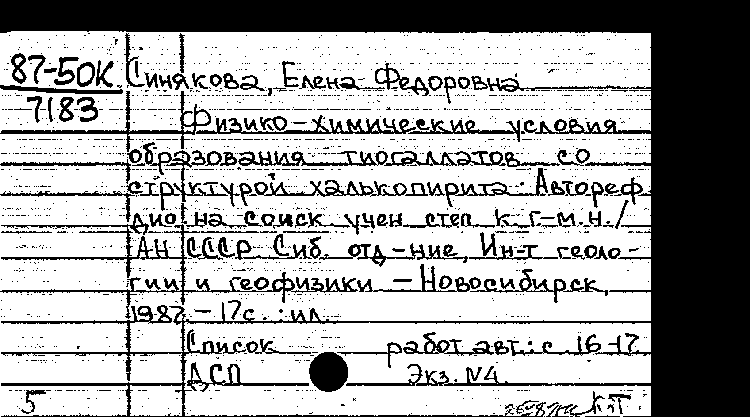 87-50К Синякова, Елена Федоровна
7183
Физико-химические условия
образования тиогаллатов со
структурой халькопирита: Автореф.
дис на соиск учен степ к. г-м.н./
АН СССР. Сиб. отд-ние, Ин-т геоло-
гии и геофизики - Новосибирск,
1987. - 17с. : ил.
Список работ авт.: с. 16-17.
ДСП Экз. N4.
5 КЗТ